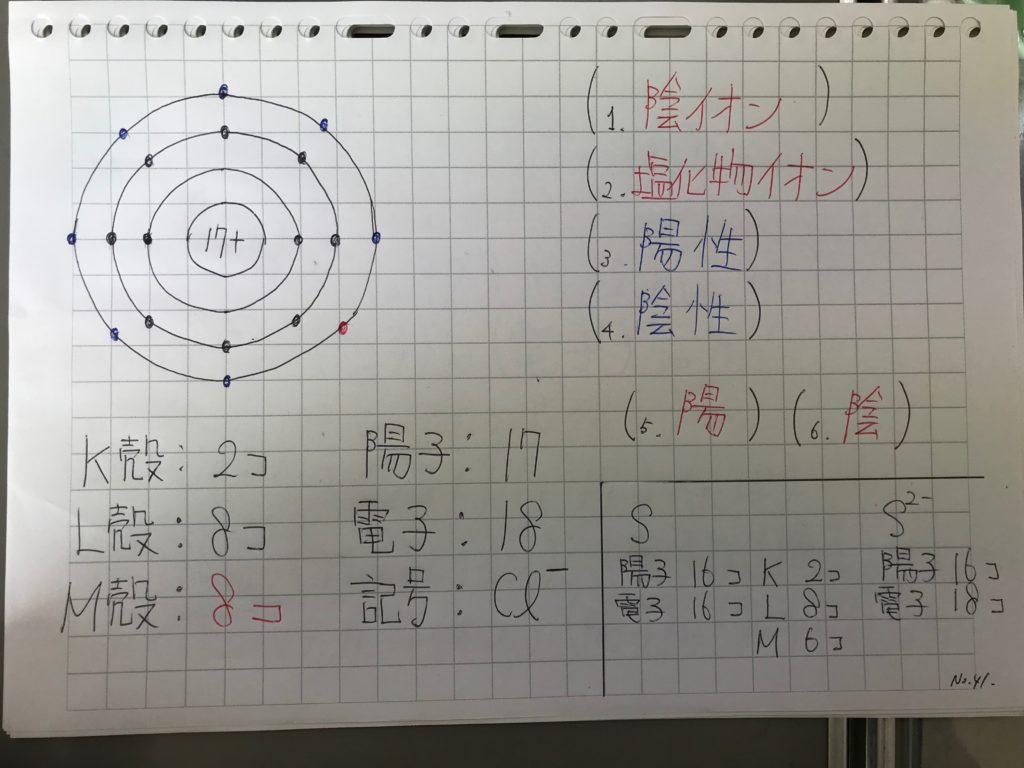 17+
(1. 陰イオン )
(2. 塩化物イオン)
(3. 陽性)
(4. 陰性)
(5. 陽 ) (6. 陰)
K殻: 2コ 陽子: 17
L殻: 8コ 電子: 18
M殻: 8コ 記号: Cl⁻
S S²⁻
陽子 16コ K 2コ 陽子 16コ
電子 16コ L 8コ 電子 18コ
M 6コ
No.41.